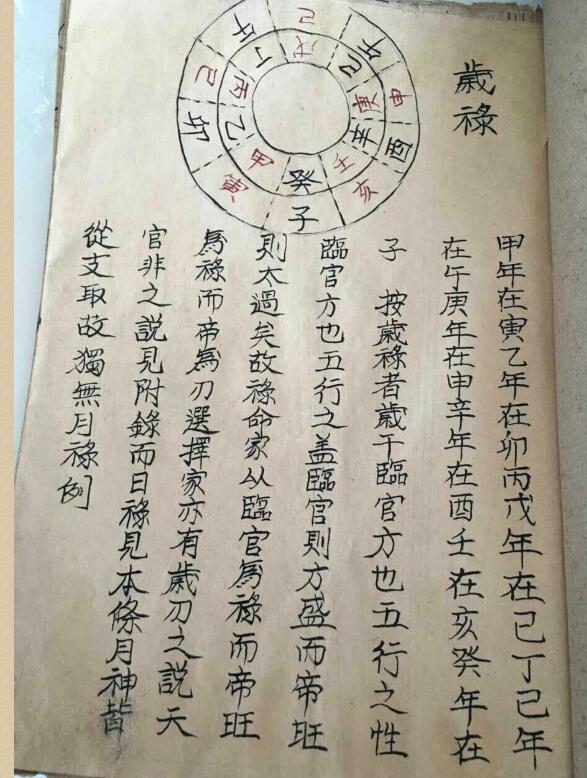 歲祿
己午申酉亥子寅卯己午
戊己庚辛壬癸甲乙丙丁
甲年在寅乙年在卯丙戊年在己丁己年
在午庚年在申辛年在酉壬在亥癸年在
子 按歲祿者歲干臨官方也五行之性
臨官方也五行之盖臨官則方盛而帝旺
則太過矣故祿命家从臨官為祿而帝旺
為祿而帝為刃選擇家亦有歲刃之說天
官非之說見附錄而日祿見本條月神皆
從支取故獨無月祿例